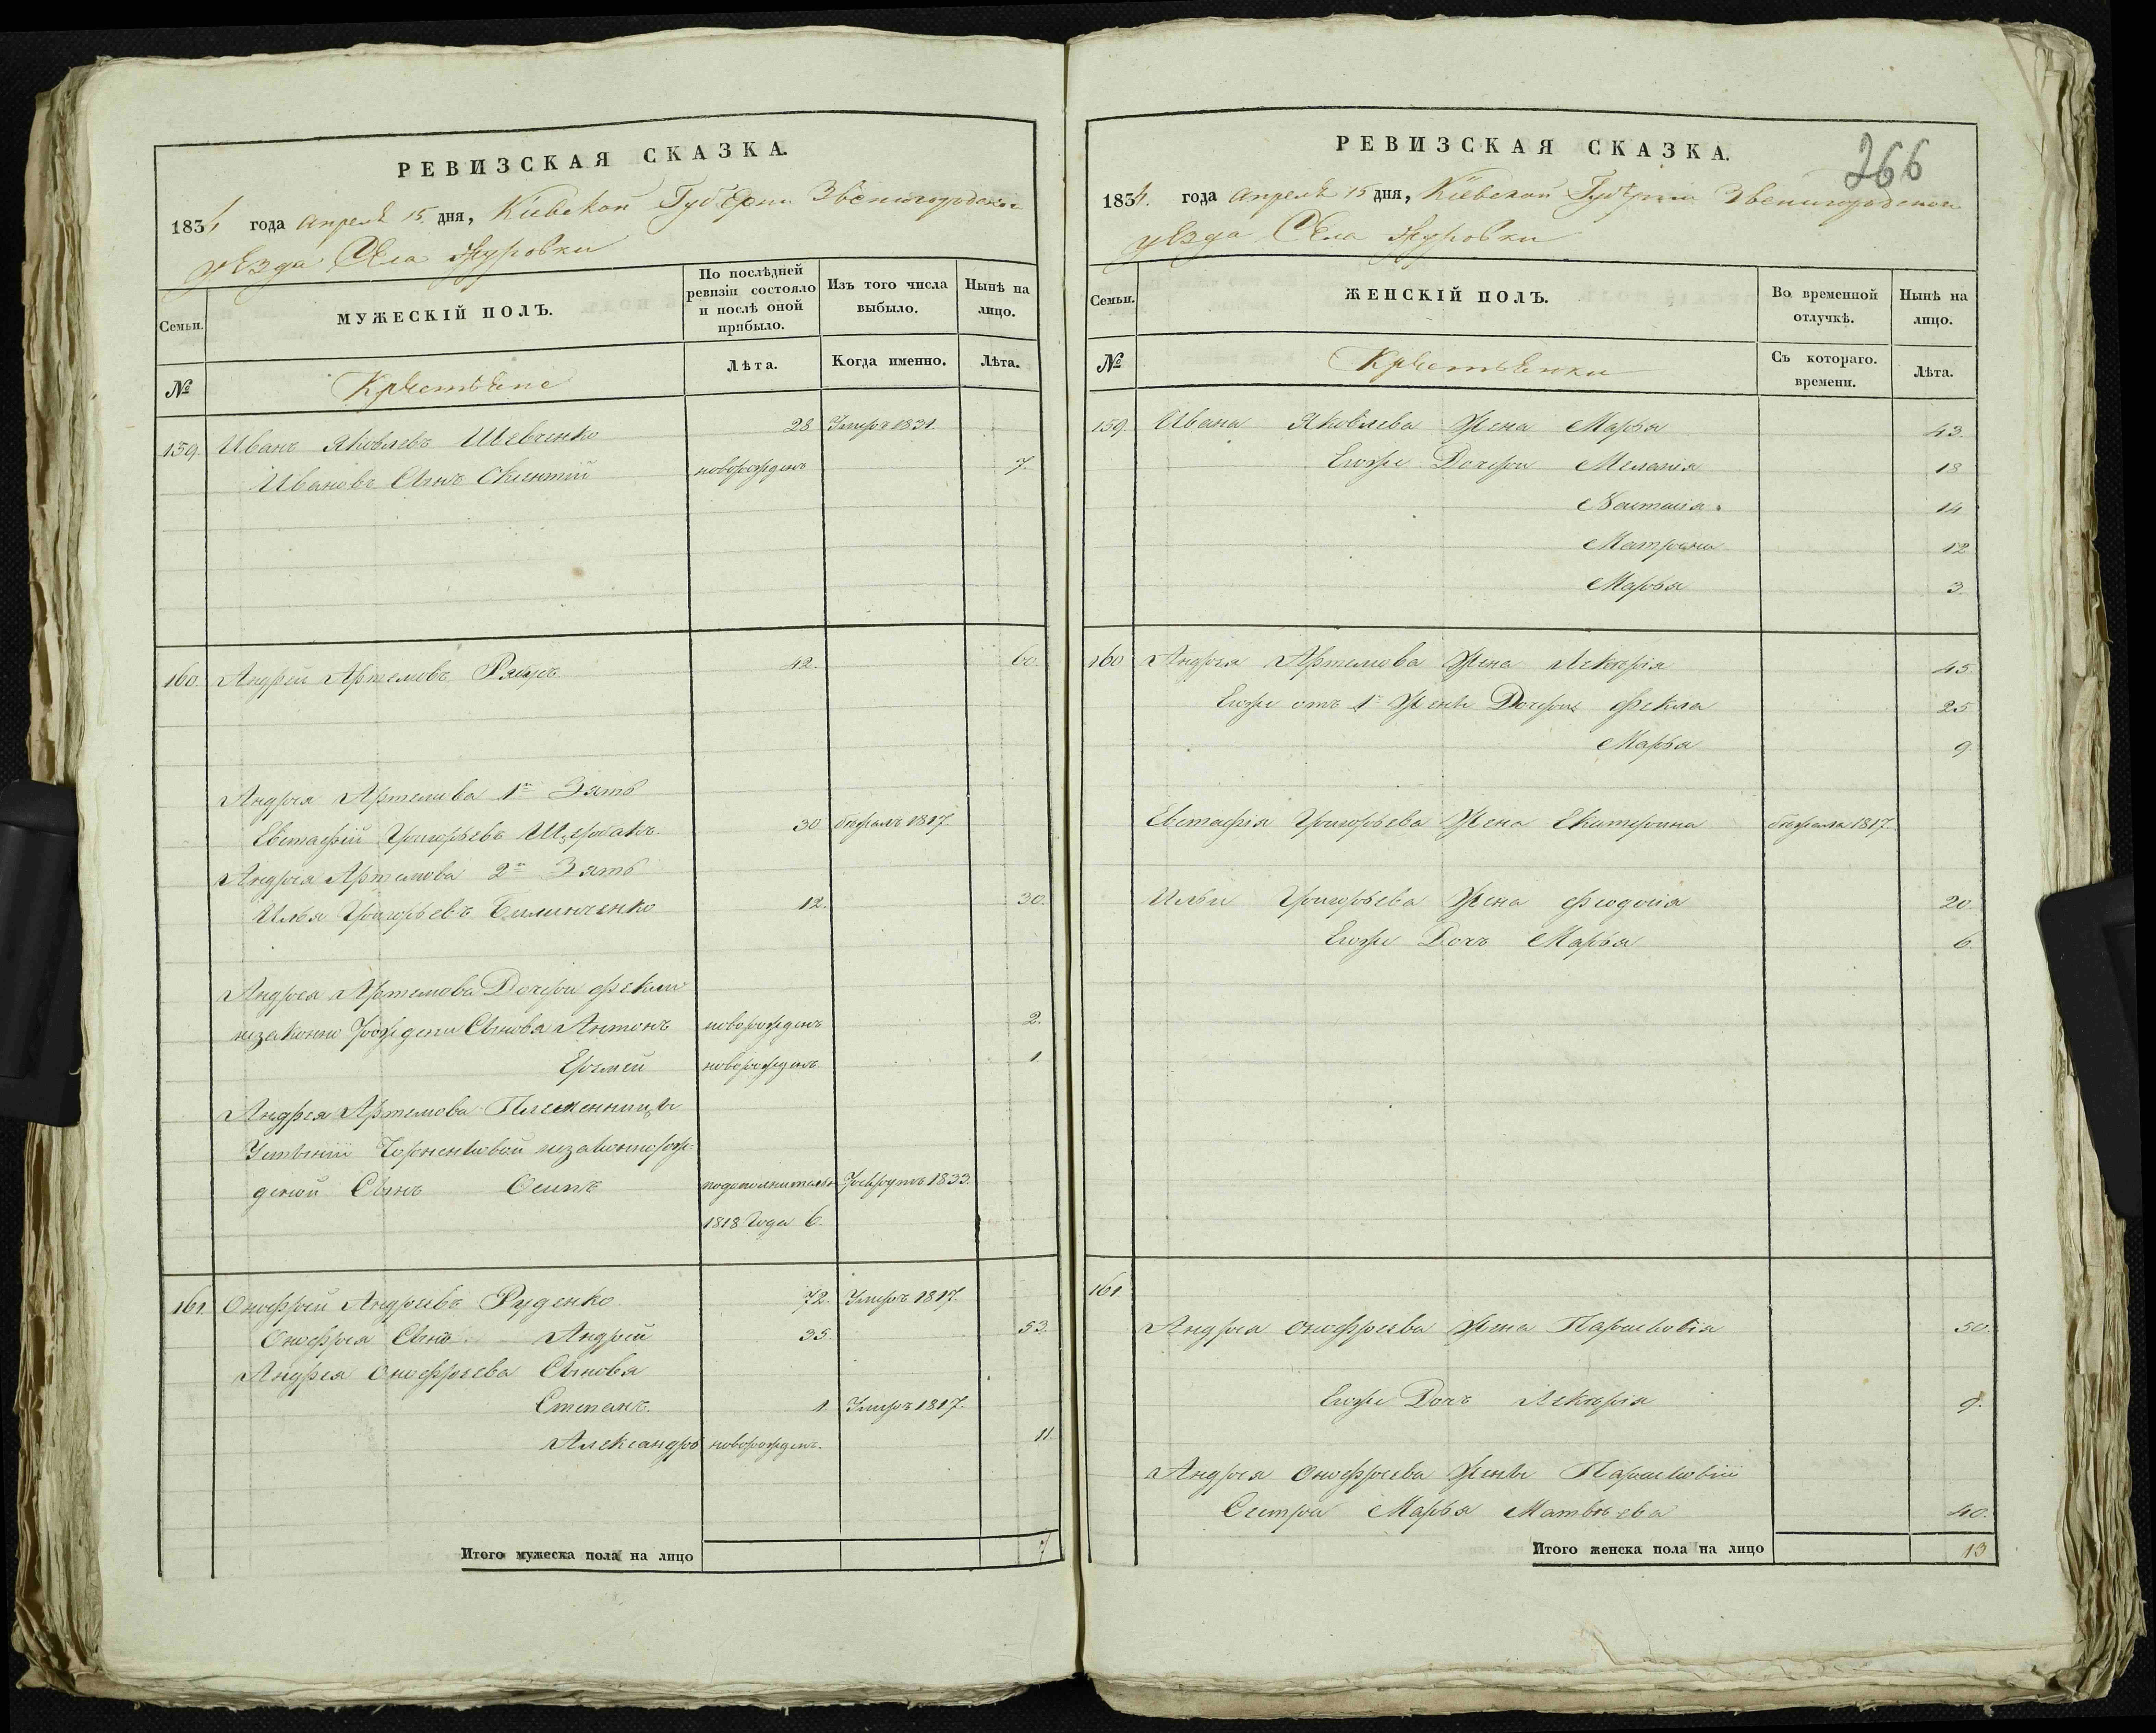 РЕВИЗСКАЯ СКАЗКА.
1834 года Апреля 15 дня, Кіевской Губерніи Звенигородской
уѣзда Села Журовки
Семьи.
МУЖЕСКІЙ ПОЛЪ.
По послѣдней ревизіи состояло и послѣ оной прибыло.
Изъ того числа выбыло.
Нынѣ на лицо.
№
Крестьяне
Лѣта.
Когда именно.
Лѣта.
159. Иванъ Яковлевъ Шевченко 28 Умеръ 1831.
Ивановъ Сынъ новорожденъ 7.
160. Андрей Артемовъ 42. 60.
Андрея Артемова 1й Зять
Евстафій Григорьевъ Щербакъ 30 бѣжалъ 1817
Андрея Артемова 2й Зять
Илья Григорьевъ Билинченко 12. 30.
Андрея Артемова Дочери Феклы
незаконно рождени Сыновя Антонъ новорожденъ 2.
Ермей новорожденъ 1
Андрея Артемова Племенницы
незаконнорож-
деной Сынъ Осипъ подополнительн Рекрутъ 1833.
1818 Года 6.
161. Онофрей Андреевъ Руденко 72. Умеръ 1817.
Онофрея Сынъ Андрей 35. 53.
Андрея Онофреева Сыновя
Степанъ. 1. Умеръ 1817.
Александръ новорожденъ. 11.
Итого мужеска пола на лицо 7
266
РЕВИЗСКАЯ СКАЗКА.
1834. года Апреля 15 дня, Кіевской Губерніи Звенигородской
уѣзда Села Журовки
Семьи.
ЖЕНСКІЙ ПОЛЪ.
Во временной отлучкѣ.
Нынѣ на лицо.
№
Крестьянки
Съ котораго. времени.
Лѣта.
159. Ивана Яковлева Жена Марья 43.
Егоже Дочери Меланія 18
Настасія 14
Матрона 12
Марья 3.
160 Андрея Артемова Жена Лекерія 45.
Егоже отъ 1й Жены Дочери Фекла 25
Марья 9.
Евстафія Григорьева Жена Екатерина бѣжала 1817.
Ильи Григорьева Жена Феодосія 20.
Егоже Дочь Марья 6.
161
Андрея Онофреева Жена Парасковія 50.
Егоже Дочь Лекерія 9.
Андрея Онофреева Жены Парасковіи
Сестра Марья Матвѣева 40.
Итого женска пола на лицо 13